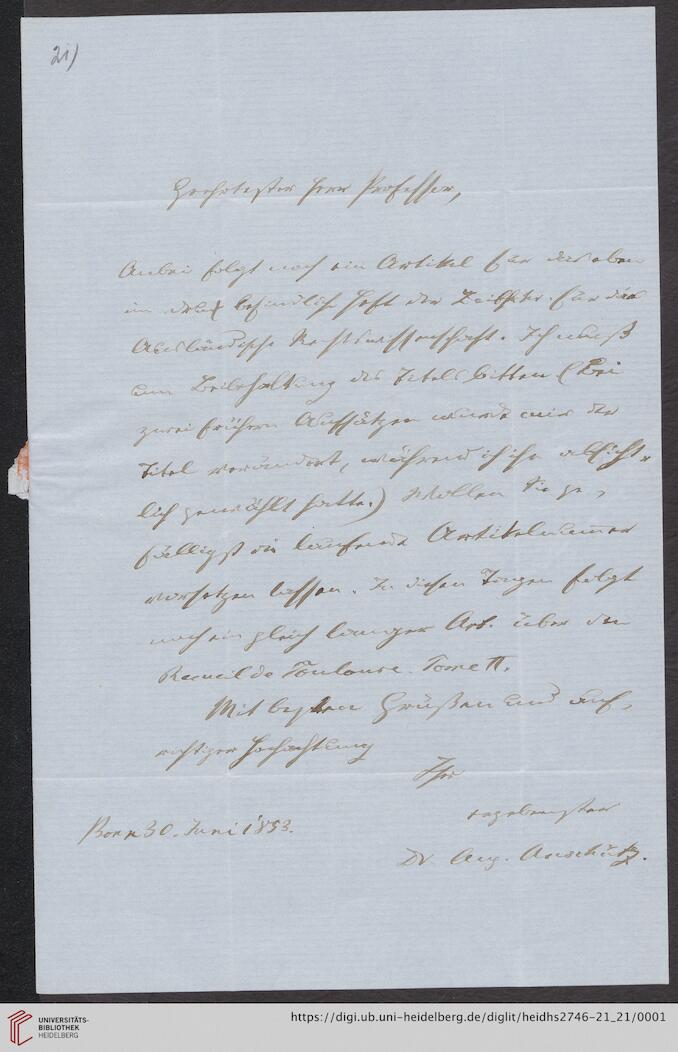 21)
Geehrtester Herr Professor,
Anbei folgt noch ein Artikel für das eben
im Druck befindliche Heft der Zeitschr. für die
Ausländische Rechtswissenschaft. Ich muß
um Beibehaltung des Titels bitten (bei
zwei frühern Aufsätzen wurde mir der
Titel verändert, während ich ihn absicht-
lich gewählt hatte.) Wollen Sie ge-
fälligst die laufende Artikelnummer
vorsetzen lassen. In diesen Tagen folgt
noch ein gleich langer Art. über den
Recueil de Toulouse. Tome II.
Mit besten Grüßen und auf-
richtiger Hochachtung
Ihr
ergebenster
Dr Aug. Anschütz.
Bonn 30. Juni 1853.
UNIVERSITÄTS-
BIBLIOTHEK
HEIDELBERG
https://digi.ub.uni-heidelberg.de/diglit/heidhs2746-21_21/0001